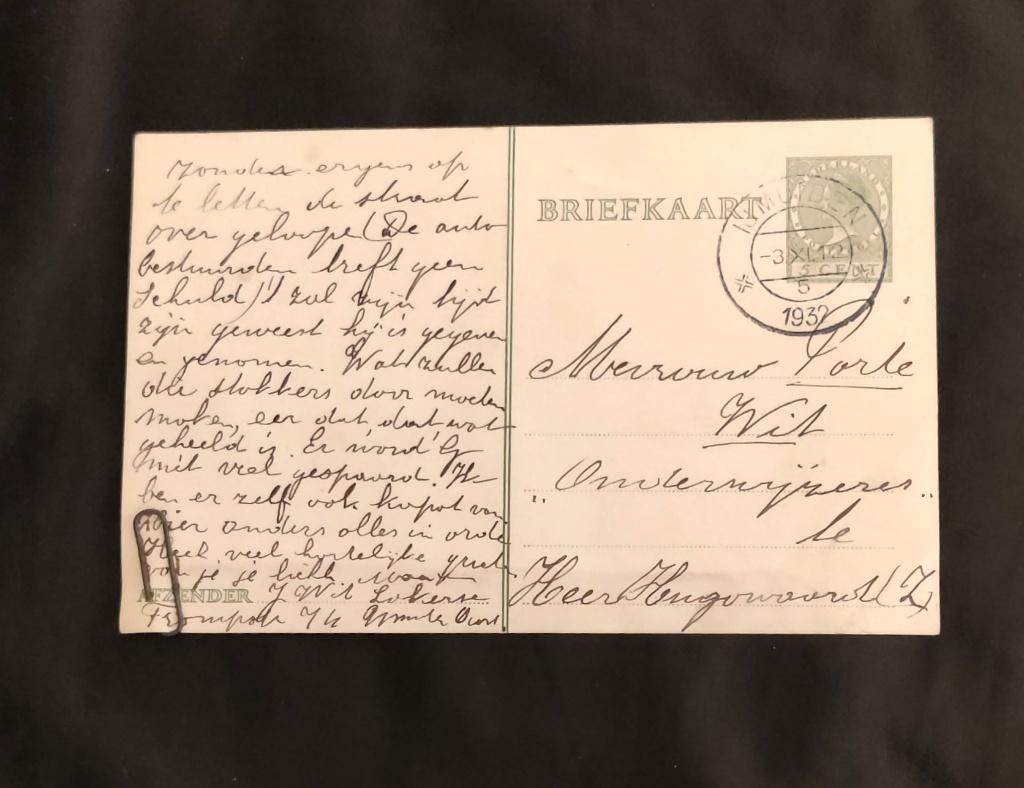 zonder ergens op
te letten de straat
over geloope (De auto
bestuurden treft geen
schuld)! zal zijn tijd
zijn geweest hij is gegeven
en genomen. Wat zullen
die stakkers door moeten
maken, eer dat dat wat
geheeld is. Er word G
niet veel gespaard. Ik
ben er zelf ook kapot van
Hier anders alles in orde
Heel veel hartelijke groeten
van je je liefh.
AFZENDER J Wit Lokerse
IJmuiden Oost
BRIEFKAART
NEDERLAND
5 CENT
IJMUIDEN
-3.XI.12
5
1932
Mevrouw
Wit
"Onderwijzeres"
te
Heer Hugowaard (Z)